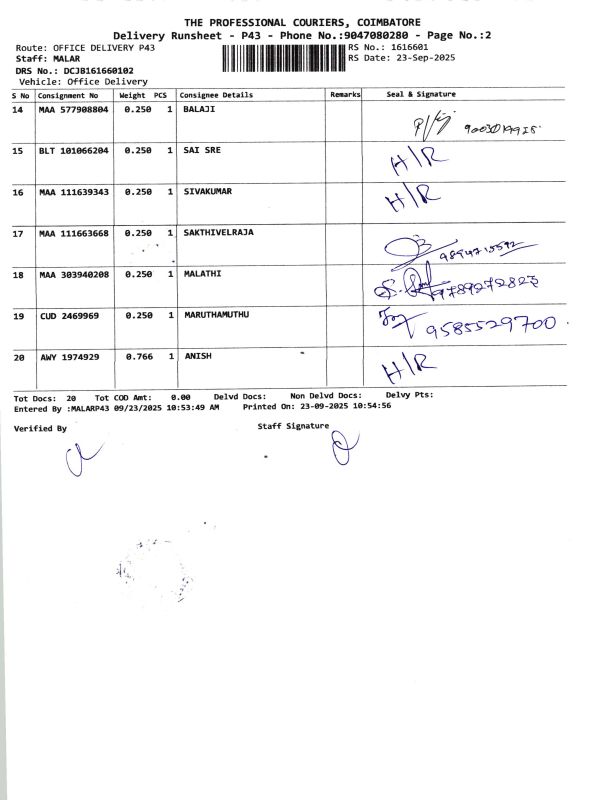 THE PROFESSIONAL COURIERS, COIMBATORE
Delivery Runsheet - P43 - Phone No.:9047080280 - Page No.:2
Route: OFFICE DELIVERY P43 RS No.: 1616601
Staff: MALAR RS Date: 23-Sep-2025
DRS No.: DCJB161660102
Vehicle: Office Delivery
S No Consignment No Weight PCS Consignee Details Remarks Seal & Signature
14 MAA 577908804 0.250 1 BALAJI
15 BLT 101066204 0.250 1 SAI SRE H/R
16 MAA 111639343 0.250 1 SIVAKUMAR H/R
17 MAA 111663668 0.250 1 SAKTHIVELRAJA
18 MAA 303940208 0.250 1 MALATHI 9789272823
19 CUD 2469969 0.250 1 MARUTHAMUTHU 9585529700
20 AWY 1974929 0.766 1 ANISH H/R
Tot Docs: 20 Tot COD Amt: 0.00 Delvd Docs: Non Delvd Docs: Delvy Pts:
Entered By :MALARP43 09/23/2025 10:53:49 AM Printed On: 23-09-2025 10:54:56
Verified By Staff Signature